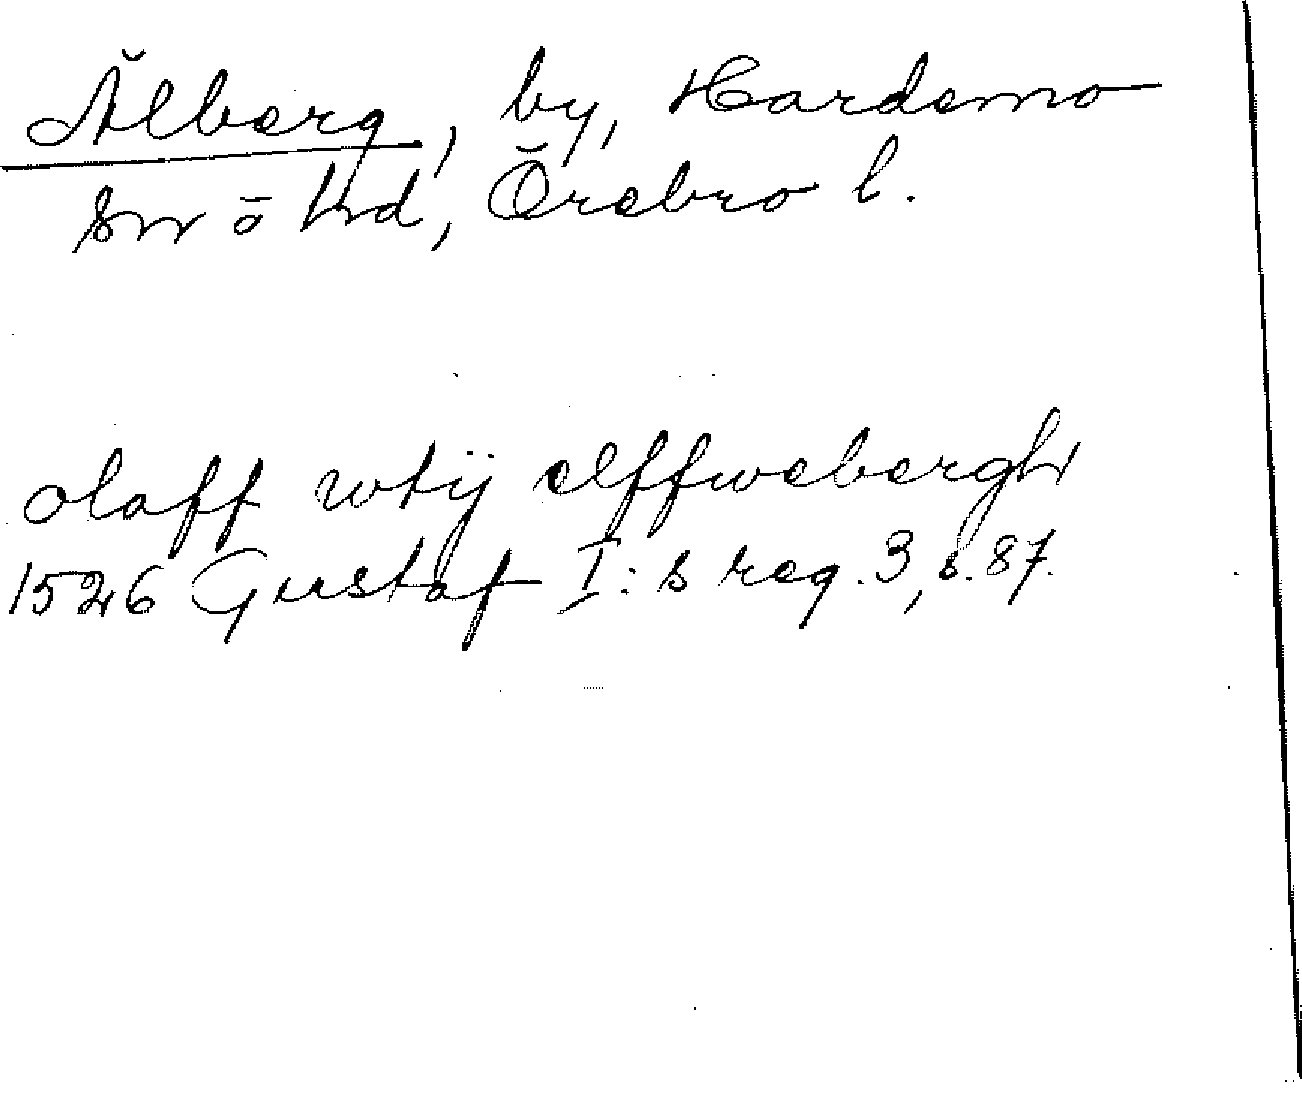 Älberg, by, Hardemo
sn ō hd, Örebro l.
olaff wtij elffwebergh
1526 Gustaf I:s reg. 3, s. 87.